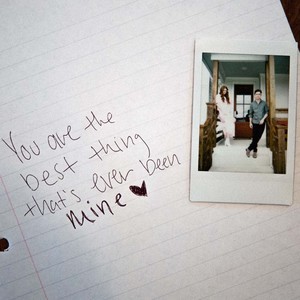 You are the
best thing
that's ever been
mine